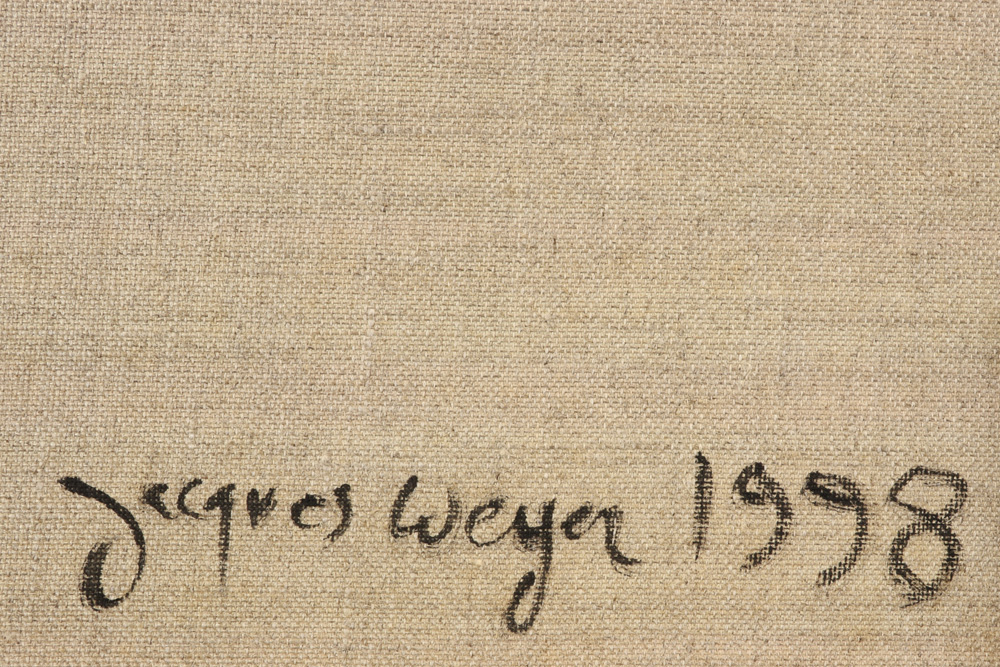 Jacques Weyer 1998